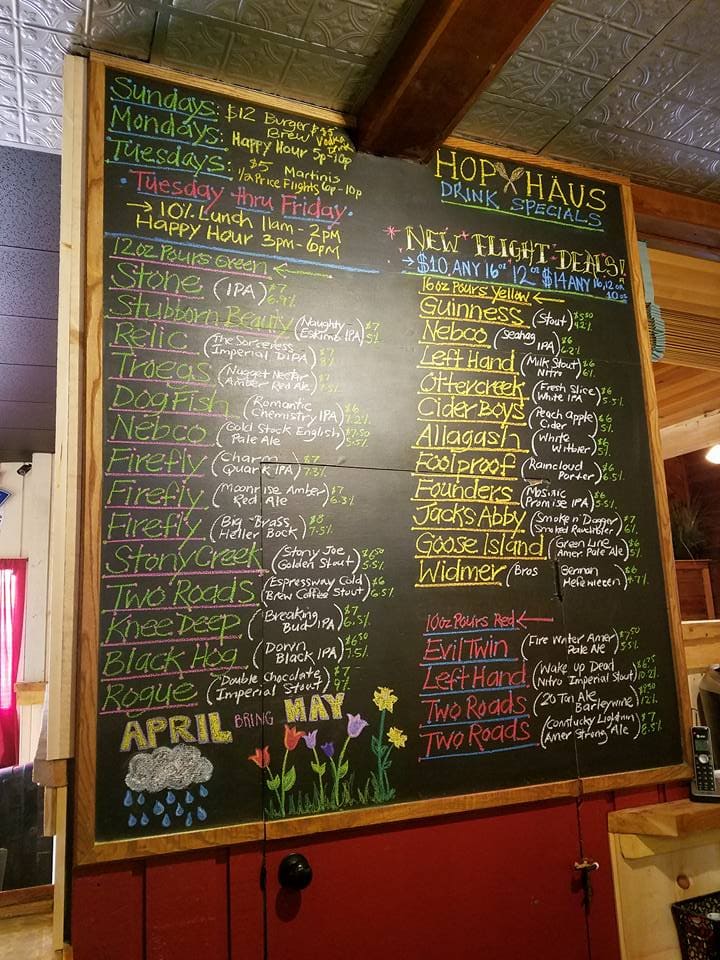 Sundays: $12 Burger &
Brew $5 Vodka
Drink
Mondays: Happy Hour 5p-10p
Tuesdays: $5 Martinis
1/2 Price Flights 6p-10p
• Tuesday thru Friday •
→ 10% Lunch 11am-2pm
Happy Hour 3pm-6pm
12oz Pours Green ←
Stone (IPA) $7
6.9%
Stubborn Beauty (Naughty $7
Eskimo IPA) 5%
Relic (The Sorceress $7
Imperial DIPA) 8%
Troegs (Nugget Nectar $7
Amber Red Ale) 7.5%
Dog Fish (Romantic $6
Chemistry IPA) 7.2%
Nebco (Gold Stock English $7.50
Pale Ale) 5.5%
Firefly (Charm $7
Quark IPA) 7.3%
Firefly (Moonrise Amber $7
Red Ale) 6.3%
Firefly (Big Brass $8
Heller Bock) 7.5%
Stony Creek (Stony Joe $6.50
Golden Stout) 5.5%
Two Roads (Espressway Cold $6
Brew Coffee Stout) 6.5%
Knee Deep (Breaking $7
Bud IPA) 6.5%
Black Hog (Dawn $6.50
Black IPA) 7.5%
Rogue (Double Chocolate $7
Imperial Stout) 9%
APRIL BRING MAY
HOP HÄUS
DRINK SPECIALS
NEW FLIGHT DEALS!
→ $10, ANY 16oz 12oz $14 ANY 16, 12 or
10oz
16oz Pours Yellow ←
Guinness (Stout) $5.50
4.2%
Nebco (Seahag $6
IPA) 6.2%
Left Hand (Milk Stout $6
Nitro) 6%
Ottercreek (Fresh Slice $6
White IPA) 5.5%
Cider Boys (Peach Apple $6
Cider) 5%
Allagash (White $6
Witbier) 5%
Foolproof (Raincloud $6
Porter) 6.5%
Founders (Mosaic $6
Promise IPA) 5.5%
Jacks Abby (Smoke n' Dagger $7
Smoked Rauchbier) 6%
Goose Island (Green Line $6
Amer Pale Ale) 5%
Widmer (Bros German $6
Hefeweizen) 4.7%
10oz Pours Red ←
Evil Twin (Fire Water Amer $7.50
Pale Ale) 5.5%
Left Hand (Wake up Dead $6.75
Nitro Imperial Stout) 10.2%
Two Roads (20 Ton Ale
Barleywine) 12%
Two Roads (Conntucky Lightnin $7
Amer Strong Ale) 8.5%